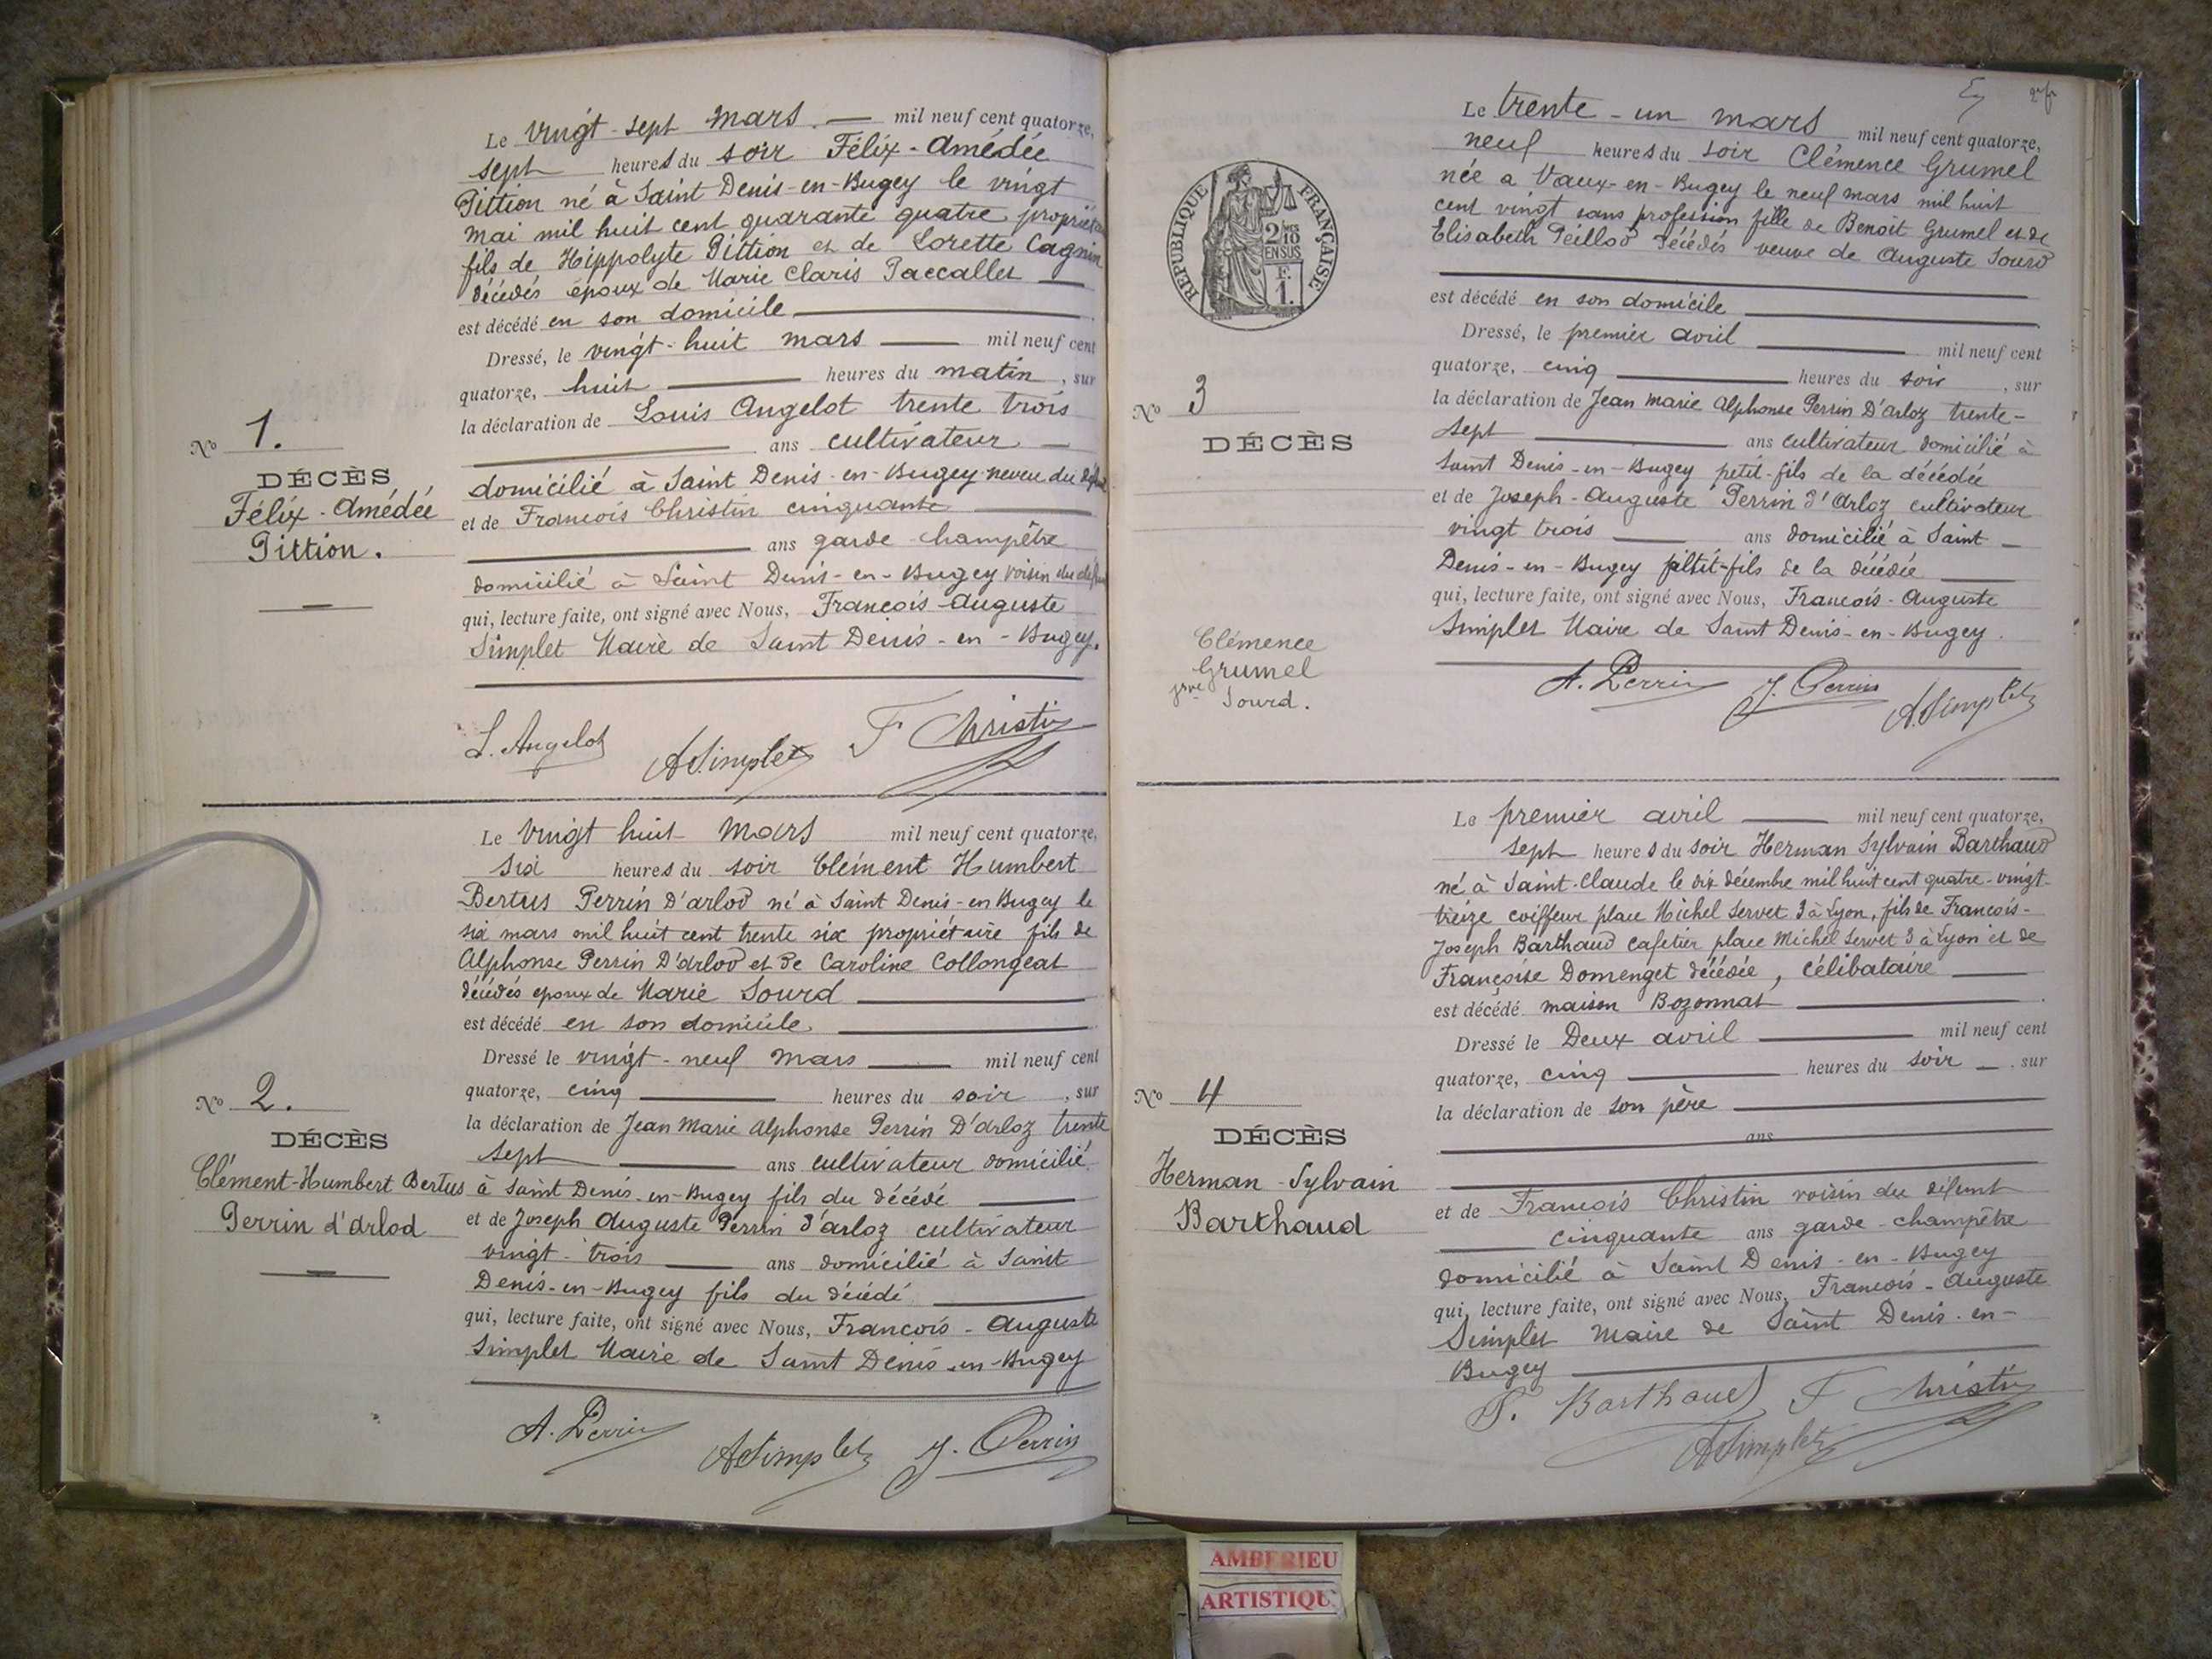 Le vingt-sept mars — mil neuf cent quatorze,
sept heures du soir Félix-Amédée
Pittion né à Saint Denis-en-Bugey le vingt
mai mil huit cent quarante quatre
fils de Hippolyte Pittion et de Lorette Cagnin
décédés époux de Marie Claris Paccallet —
est décédé en son domicile
Dressé, le vingt-huit mars — mil neuf cent
quatorze, huit — heures du matin, sur
la déclaration de Louis Angelot trente trois
— ans cultivateur —
domicilié à Saint Denis-en-Bugey neveu du
et de Francois Christin cinquante
— ans garde-champêtre
domicilié à Saint Denis-en-Bugey voisin du
qui, lecture faite, ont signé avec Nous, Francois-Auguste
Simplet Maire de Saint Denis-en-Bugey.
No 1.
DÉCÈS
Félix-Amédée
Pittion.
L. Angelot ASimplet F Christin
Le vingt huit mars mil neuf cent quatorze,
six heures du soir Clément Humbert
Bertus Perrin D'arlod né à Saint Denis-en Bugey le
six mars mil huit cent trente six propriétaire fils de
Alphonse Perrin D'arlod et de Caroline Collongeat
décédés epoux de Marie Sourd
est décédé en son domicile
Dressé le vingt-neuf mars — mil neuf cent
quatorze, cinq — heures du soir, sur
la déclaration de Jean Marie Alphonse Perrin D'arloz trente
sept — ans cultivateur domicilié
à Saint Denis-en-Bugey fils du décédé
et de Joseph Auguste Perrin d'arloz cultivateur
vingt-trois — ans domicilié à Saint
Denis-en-Bugey fils du décédé
qui, lecture faite, ont signé avec Nous, Francois-Auguste
Simplet Maire de Saint Denis-en-Bugey
No 2.
DÉCÈS
Clément-Humbert Bertus
Perrin d'arlod
A. Perrin ASimplet J. Perrin
RÉPUBLIQUE FRANÇAISE
2 10
EN SUS
F.
1.
Le trente-un mars mil neuf cent quatorze,
neuf heures du soir Clémence Grumel
née a Vaux-en-Bugey le neuf mars mil huit
cent vingt sans profession fille de Benoît Grumel et de
Elisabeth Peillod décédés veuve de Auguste Sourd
est décédé en son domicile
Dressé, le premier avril — mil neuf cent
quatorze, cinq — heures du soir, sur
la déclaration de Jean Marie Alphonse Perrin D'arloz trente-
sept — ans cultivateur domicilié à
Saint Denis-en-Bugey petit-fils de la décédée
et de Joseph-Auguste Perrin d'Arloz cultivateur
vingt trois — ans domicilié à Saint —
Denis-en-Bugey -fils de la décédée
qui, lecture faite, ont signé avec Nous, Francois-Auguste
Simplet Maire de Saint Denis-en-Bugey.
No 3
DÉCÈS
Clémence
Grumel
Sourd.
A. Perrin J. Perrin A.Simplet
Le premier avril — mil neuf cent quatorze,
sept heures du soir Herman Sylvain Barthaud
né à Saint-Claude le dix décembre mil huit cent quatre-vingt-
treize coiffeur place Michel Servet 3 à Lyon, fils de Francois-
Joseph Barthaud cafetier place Michel Servet 3 à Lyon et de
Françoise Domenget décédée, célibataire
est décédé maison Bozonnat
Dressé le Deux avril — mil neuf cent
quatorze, cinq — heures du soir —, sur
la déclaration de son père
ans
et de Francois Christin voisin du défunt
— cinquante ans garde-champêtre
domicilié à Saint Denis-en-Bugey
qui, lecture faite, ont signé avec Nous, Francois-Auguste
Simplet Maire de Saint Denis-en-
Bugey
No 4
DÉCÈS
Herman-Sylvain
Barthaud
Barthaud F Christin
ASimplet
AMBERIEU
ARTISTIQU